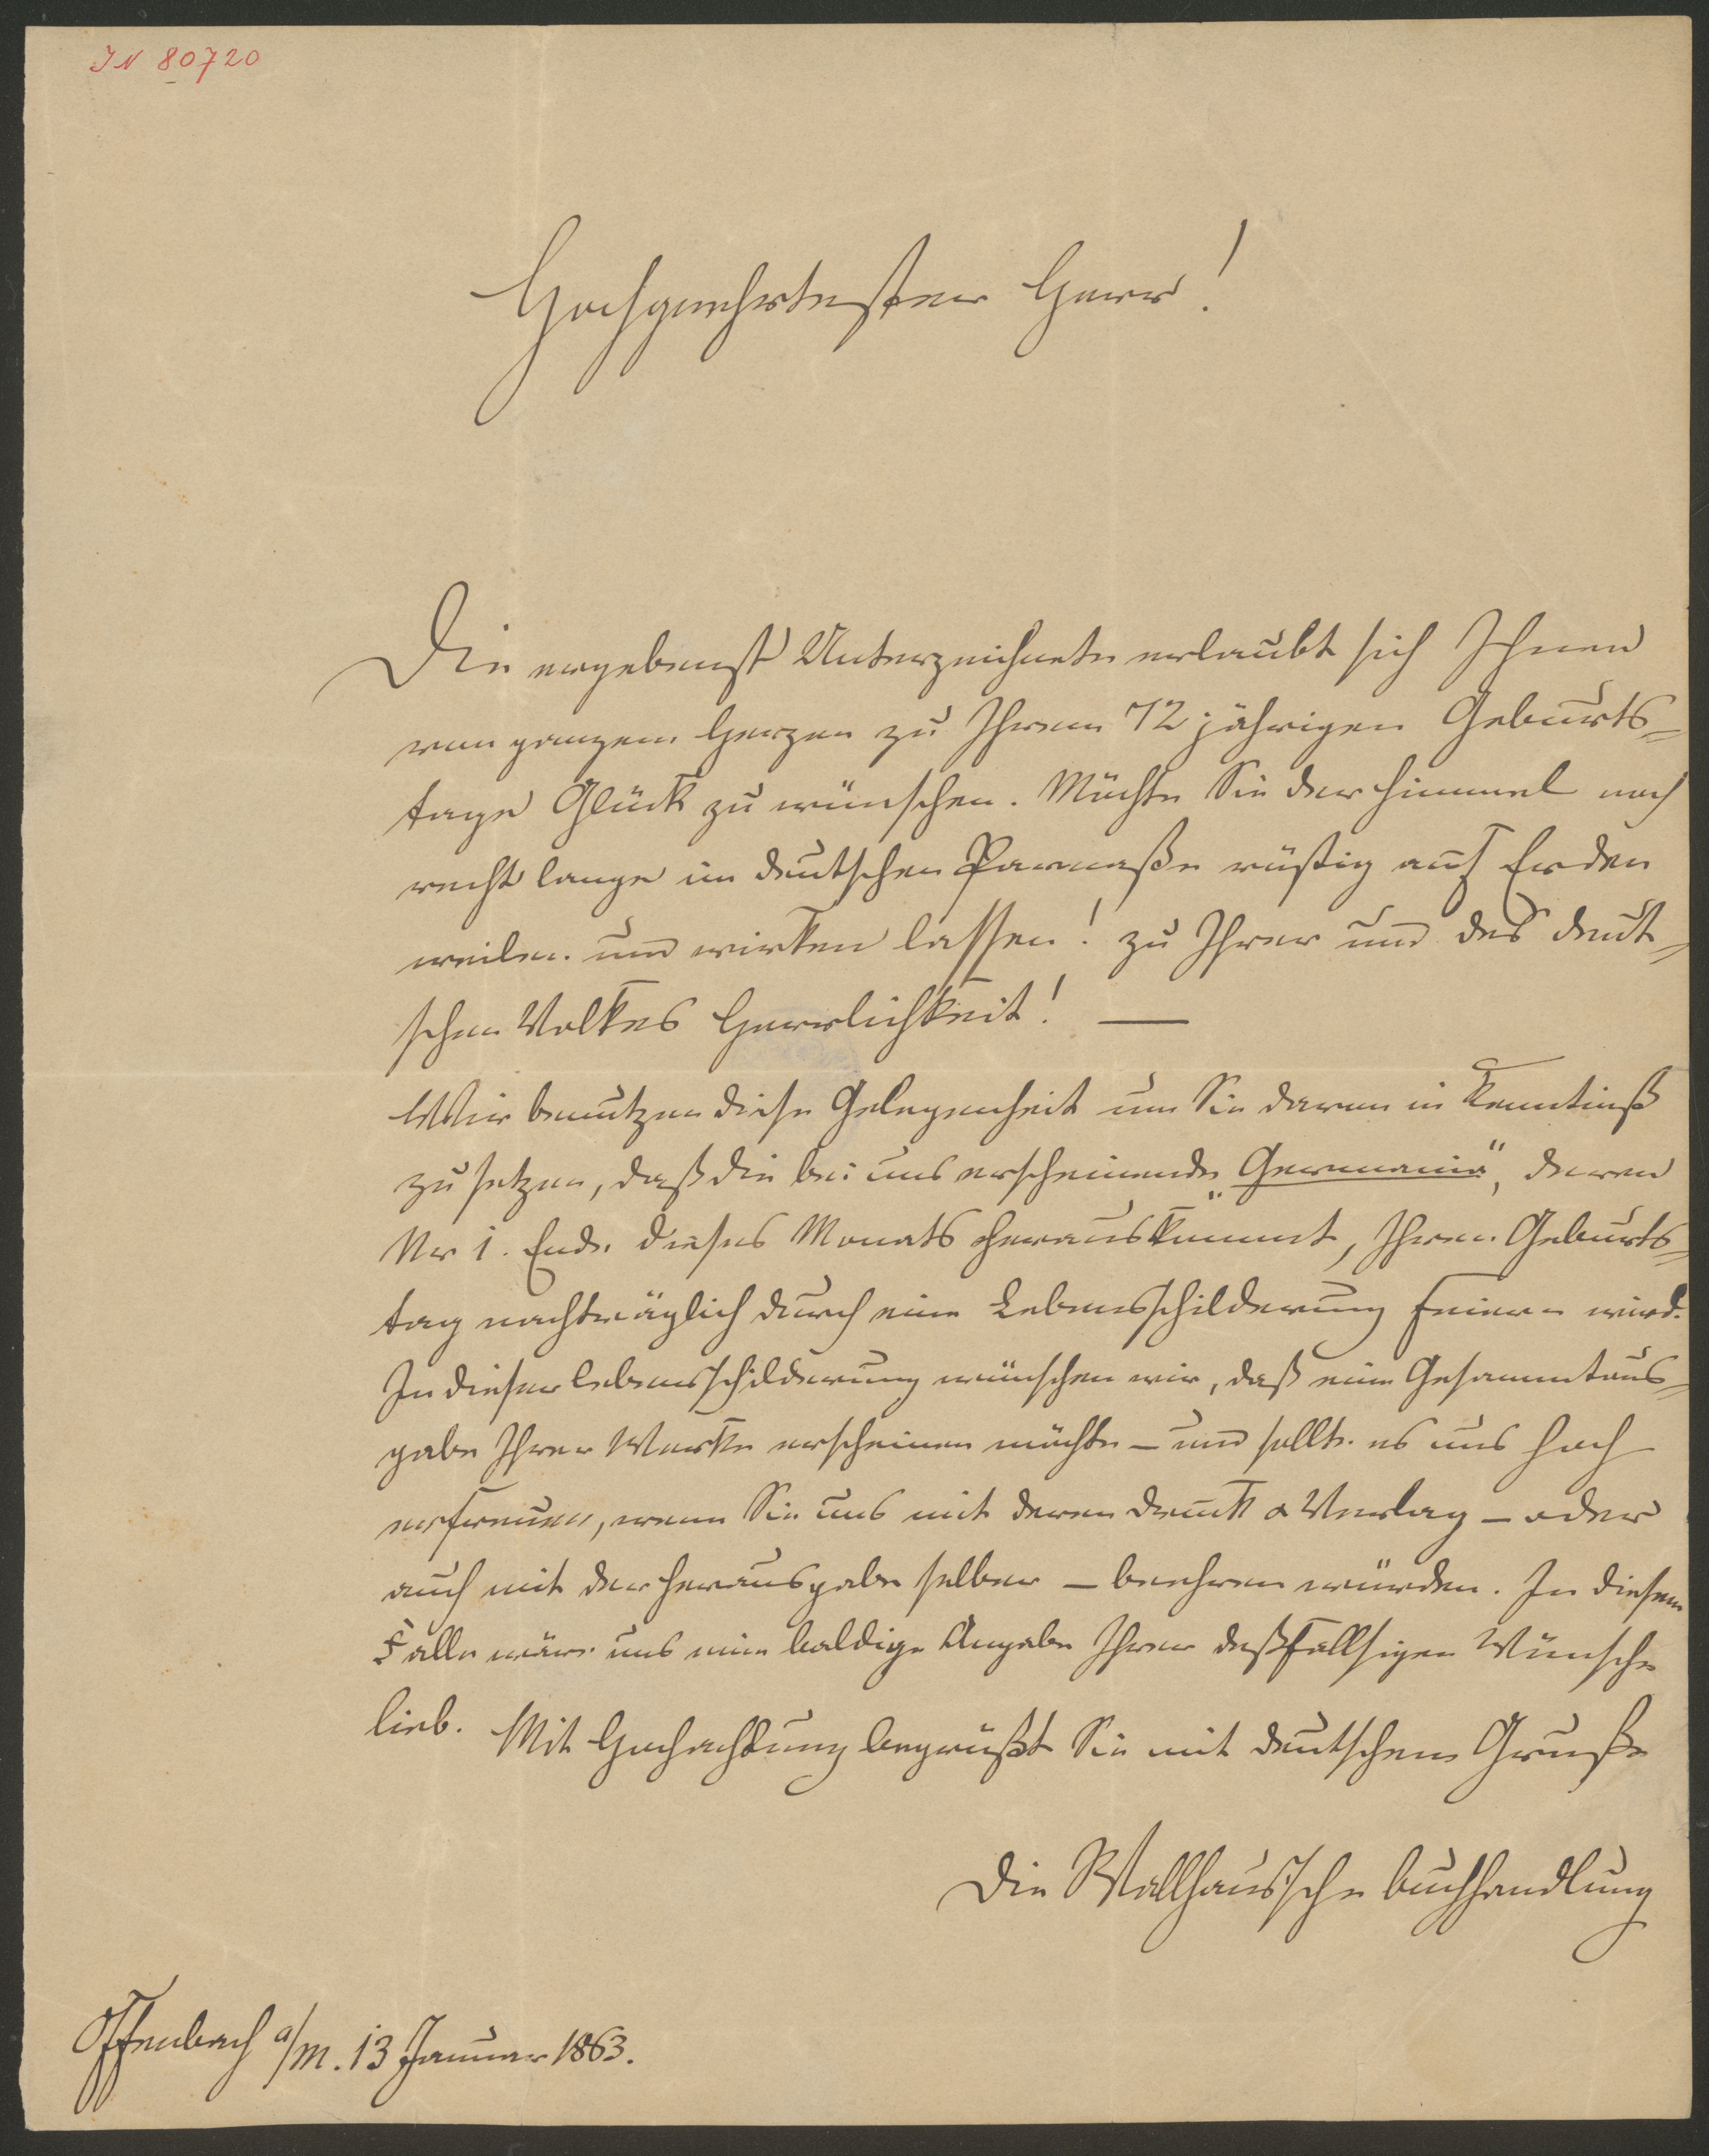 IN 80720
Hochgeehrtester Herr!
Die ergebenst Unterzeichnete erlaubt sich Ihnen
von ganzem Herzen zu Ihrem 72 jährigen Geburts=
tage Glück zu wünschen. Möchte Sie der Himmel noch
recht lange im deutschen Parnaße rüstig auf Erden
weilen und wirken lassen! zu Ihrer und des deut=
schen Volkes Herrlichkeit! —
Wir benutzen diese Gelegenheit um Sie davon in Kenntniß
zu setzen, daß die bei uns erscheinende „Germania“, deren
Nr 1. Ende dieses Monats herauskommt, Ihren Geburts=
tag nachträglich durch eine Lebensschilderung feiern wird.
In dieser Lebensschilderung wünschen wir, daß eine Gesammtaus=
gabe Ihrer Werke erscheinen möchte – und sollte es uns hoch
erfreuen, wenn Sie uns mit deren Druck & Verlag – oder
auch mit der Herausgabe selber – beehren würden. In diesem
Falle wäre uns eine baldige Angabe Ihrer deßfallsigen Wünsche
lieb. Mit Hochachtung begrüßt Sie mit deutschem Gruße
Die Wallhaus'sche Buchhandlung
Offenbach a/M. 13 Januar 1863.